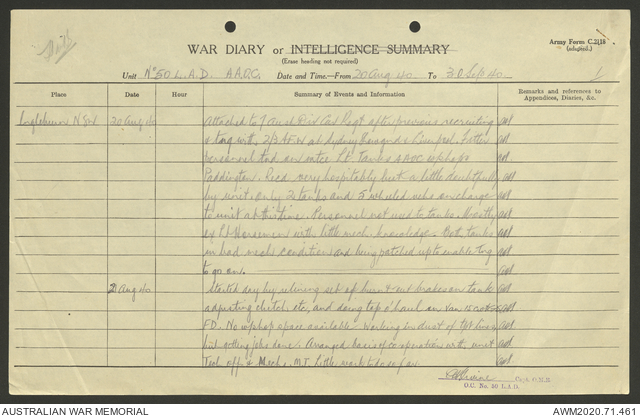 WAR DIARY or INTELLIGENCE SUMMARY
Army Form C.2118
(adapted.)
(Erase heading not required)
Unit No 50 L.A.D. A.A.O.C. Date and Time—From 20 Aug 40 To 30 Sep 40
1
Place Date Hour Summary of Events and Information Remarks and references to Appendices, Diaries, &c.
Ingleburn NSW 20 Aug 40 Attached to 7 Aust Div Cav Regt after previous recruiting
& trng with 2/3 AFW at Sydney and Liverpool. Fitter
personnel had on Lt. tanks AAOC
Paddington. Recd very hospitably but a little doubtfully
by unit. Only 2 tanks and 5 wheeled vehs on charge
to unit at this time. Personnel not used to tanks. Mostly
ex Lt Horsemen with little mech. knowledge. Both tanks
in bad mech condition and being patched up to enable trng
to go on.
21 Aug 40 Started day by relining set of brakes on tank
adjusting clutch, etc, and doing top o'haul on Van 15
FD. No wkshop space available. Working in dust of lines
but getting jobs done. Arranged basis of co operation with unit
Tech offr & Mech. M.T. Little work to do so far.
Capt. O.M.E.
O.C. No. 50 L.A.D.
AUSTRALIAN WAR MEMORIAL
AWM2020.71.461